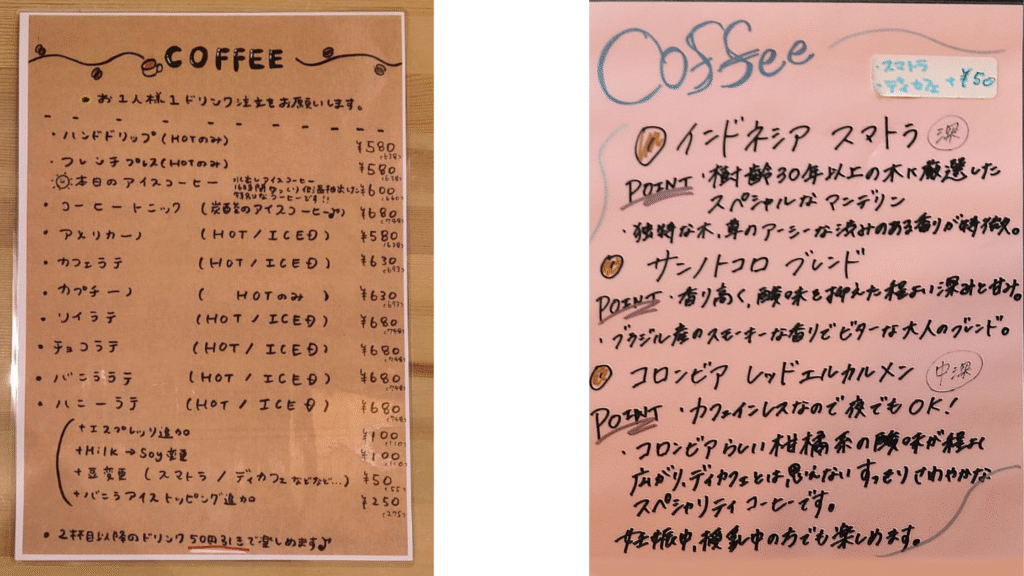 COFFEE
• お1人様1ドリンク注文をお願いします。
・ハンドドリップ(HOTのみ) ¥580
(638)
・フレンチプレス(HOTのみ) ¥580
(638)
本日のアイスコーヒー 水出しアイスコーヒー ¥600
16時間ゆっくり低温抽出した
(660)
特別なコーヒーです!!
・コーヒートニック (炭酸のアイスコーヒー♪) ¥680
(748)
・アメリカーノ (HOT / ICED) ¥580
(638)
・カフェラテ (HOT / ICED) ¥630
(693)
・カプチーノ ( HOTのみ ) ¥630
(693)
・ソイラテ (HOT / ICED) ¥680
(748)
・チョコラテ (HOT / ICED) ¥680
(748)
・バニララテ (HOT / ICED) ¥680
(748)
・ハニーラテ (HOT / ICED) ¥680
(748)
+エスプレッソ追加 ¥100
(110)
+Milk → Soy変更 ¥100
(110)
+豆変更 (スマトラ / ディカフェなどなど...) ¥50
(55)
+バニラアイストッピング追加 ¥250
(275)
• 2杯目以降のドリンク50円引きで楽しめます♪
Coffee
・スマトラ
・ディカフェ +¥50
インドネシア スマトラ 深
POINT・樹齢30年以上の木に厳選した
スペシャルなマンデリン
・独特な木、草のアーシーな渋みのある香りが特徴。
サンノトコロ ブレンド
POINT・香り高く、酸味を抑えた程よい深みと甘み。
・ブラジル産のスモーキーな香りでビターな大人のブレンド。
コロンビア レッドエルカルメン 中深
POINT・カフェインレスなので夜でもOK!
・コロンビアらしい柑橘系の酸味が程よく
広がり、ディカフェとは思えないすっきりさわやかな
スペシャリティコーヒーです。
妊娠中、授乳中の方でも楽しめます。